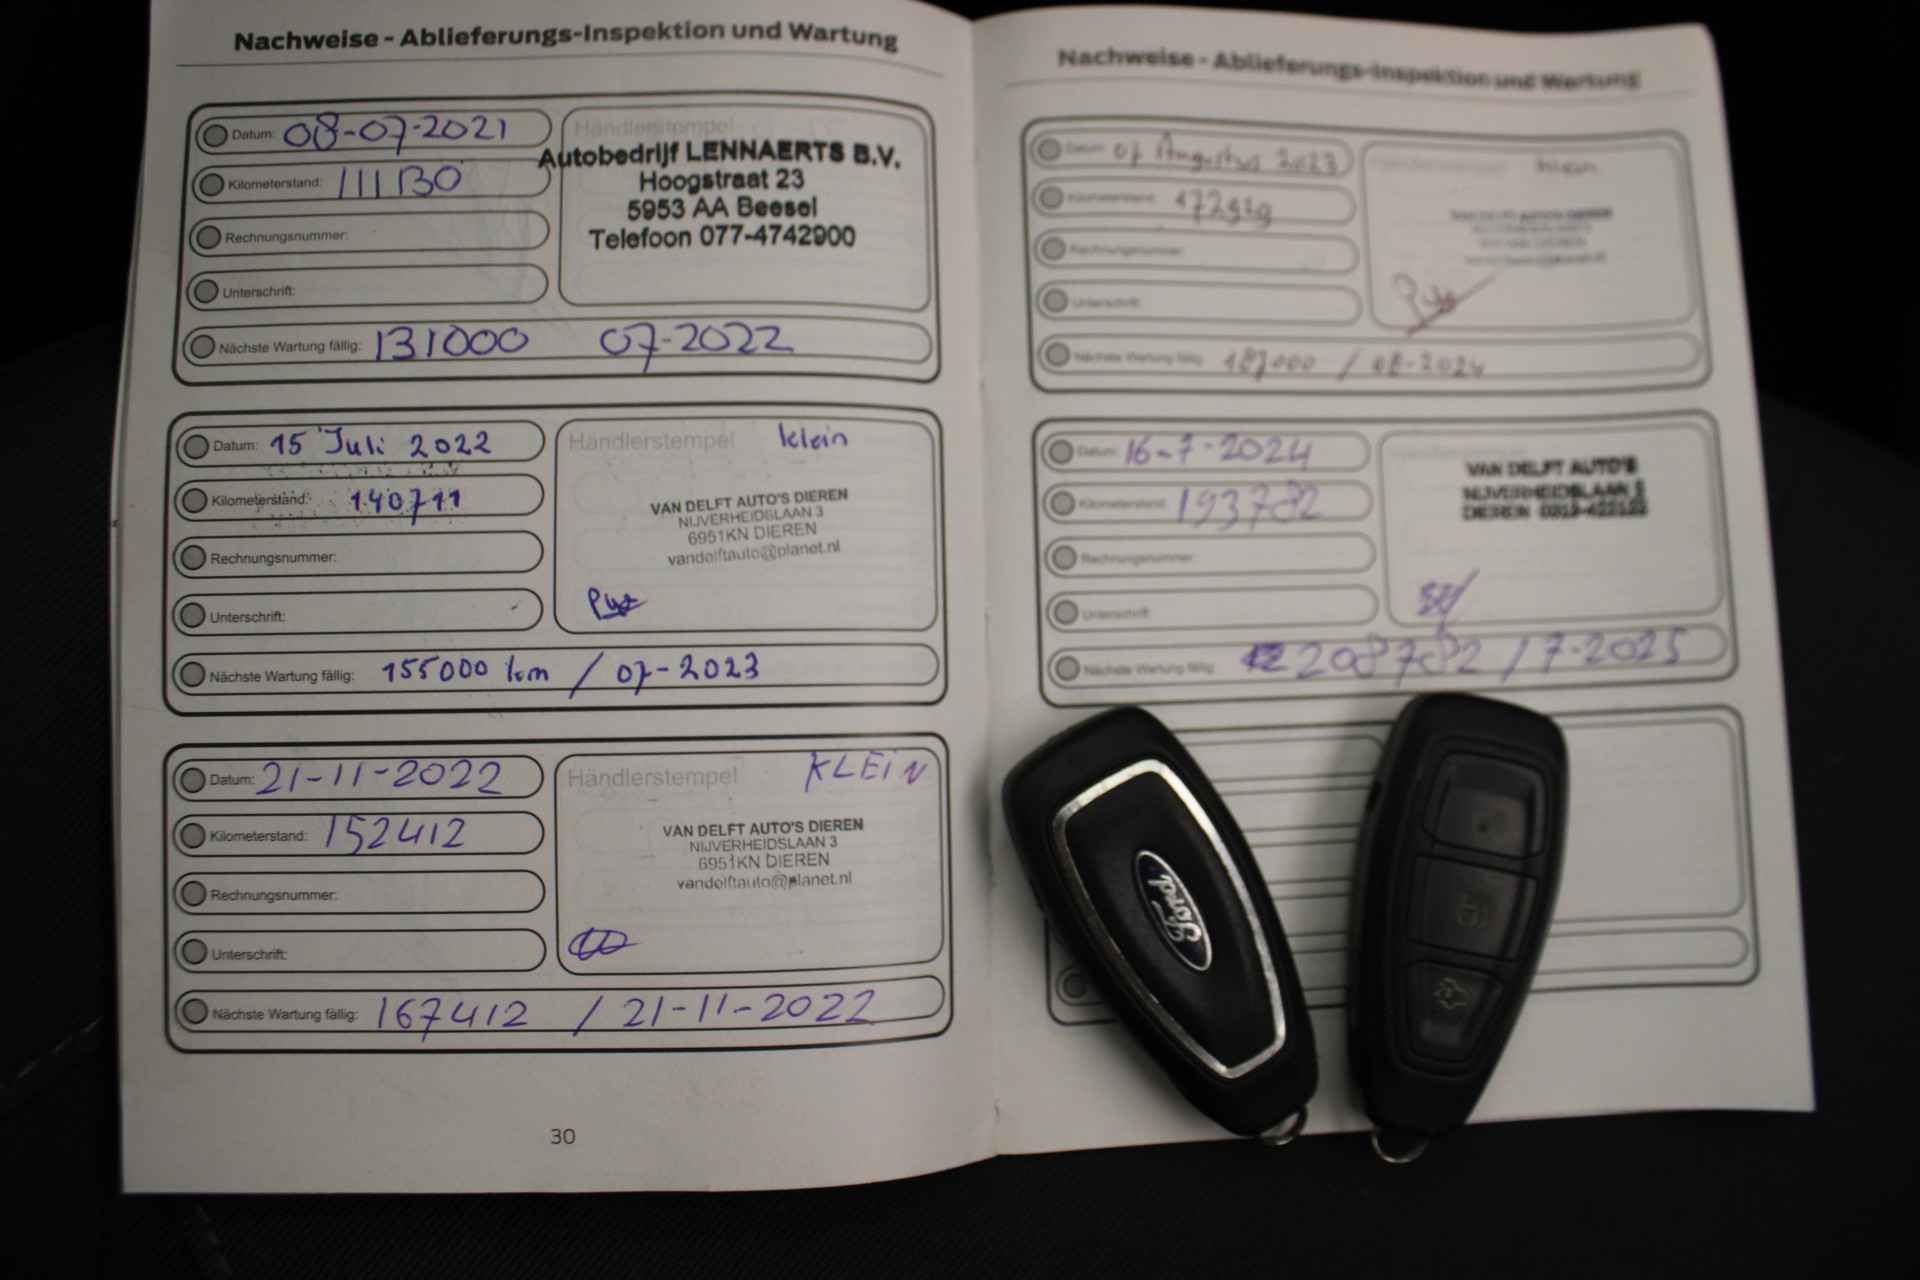 Nachweise - Ablieferungs-Inspektion und Wartung
Datum: 08-07-2021
Kilometerstand: 111130
Rechnungsnummer:
Unterschrift:
Händlerstempel
Autobedrijf LENNAERTS B.V.
Hoogstraat 23
5953 AA Beesel
Telefoon 077-4742900
Nächste Wartung fällig: 131000 07-2022
Datum: 15 Juli 2022
Kilometerstand: 140711
Rechnungsnummer:
Unterschrift:
Händlerstempel klein
VAN DELFT AUTO'S DIEREN
NIJVERHEIDSLAAN 3
6951KN DIEREN
vandelftauto@planet.nl
Nächste Wartung fällig: 155000 km / 07-2023
Datum: 21-11-2022
Kilometerstand: 152412
Rechnungsnummer:
Unterschrift:
Händlerstempel KLEIN
VAN DELFT AUTO'S DIEREN
NIJVERHEIDSLAAN 3
6951KN DIEREN
vandelftauto@planet.nl
Nächste Wartung fällig: 167412 / 21-11-2022
30
Nachweise - Ablieferungs-Inspektion und Wartung
Datum: 07 Augustus 2023
Kilometerstand:
Rechnungsnummer:
Unterschrift:
klein
VAN DELFT AUTO'S DIEREN
Nächste Wartung fällig: 187000 / 08-2024
Datum: 16-7-2024
Kilometerstand: 193782
Rechnungsnummer:
Unterschrift:
VAN DELFT AUTO'S
NIJVERHEIDSLAAN
DIEREN
Nächste Wartung fällig: 208782 / 7-2025
Ford